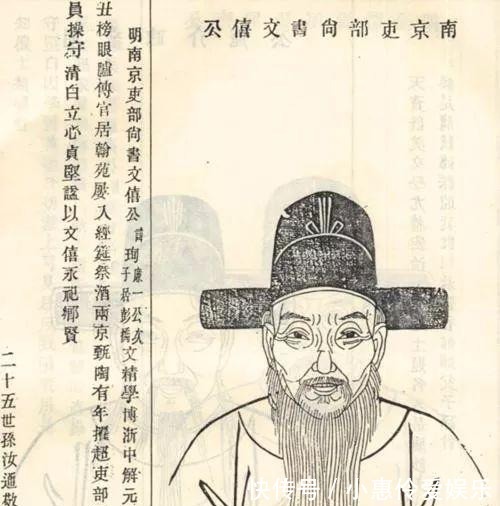 南京吏部尚書文僖公
明南京吏部尚書文僖公諱珣康一公次子居彭橋文精學博浙中解元
丑榜眼臚傳官居翰苑屢入經筵祭酒兩京甄陶有年擢超吏部
員操守清白立心貞堅謚以文僖永祀鄉賢
二十五世孫汝遁敬
快传号 / 小惠伶爱娱乐